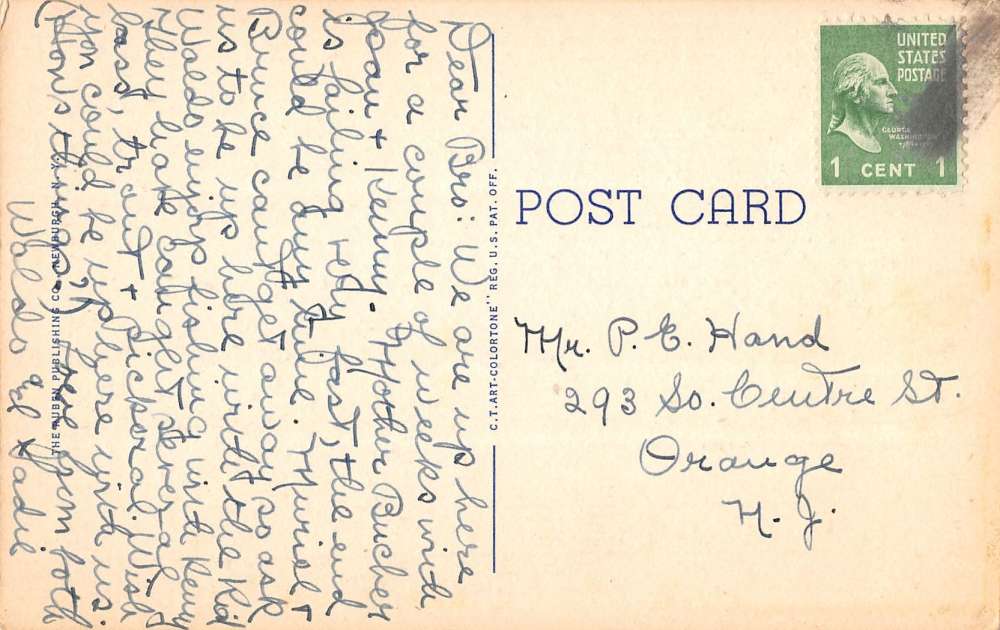 Dear Bro: We are up here
for a couple of weeks with
Jean + Kenny. Mother Bucher
is failing very fast, the end
could be any time. Muriel +
Bruce can't get away so ask
us to be up here with the Kid
Waldo enjoys fishing with Kenny
They have caught several
bass, trout + Pickeral. Wish
you could be up here with us.
How's things? Love from both
Waldo and Sadie
THE RUBEN PUBLISHING CO., NEWBURGH, N. Y.
C. T. ART-COLORTONE" REG. U. S. PAT. OFF.
POST CARD
UNITED
STATES
POSTAGE
GEORGE
WASHINGTON
1 CENT 1
Mr. P. E. Hand
293 So. Centre St.
Orange
N. J.